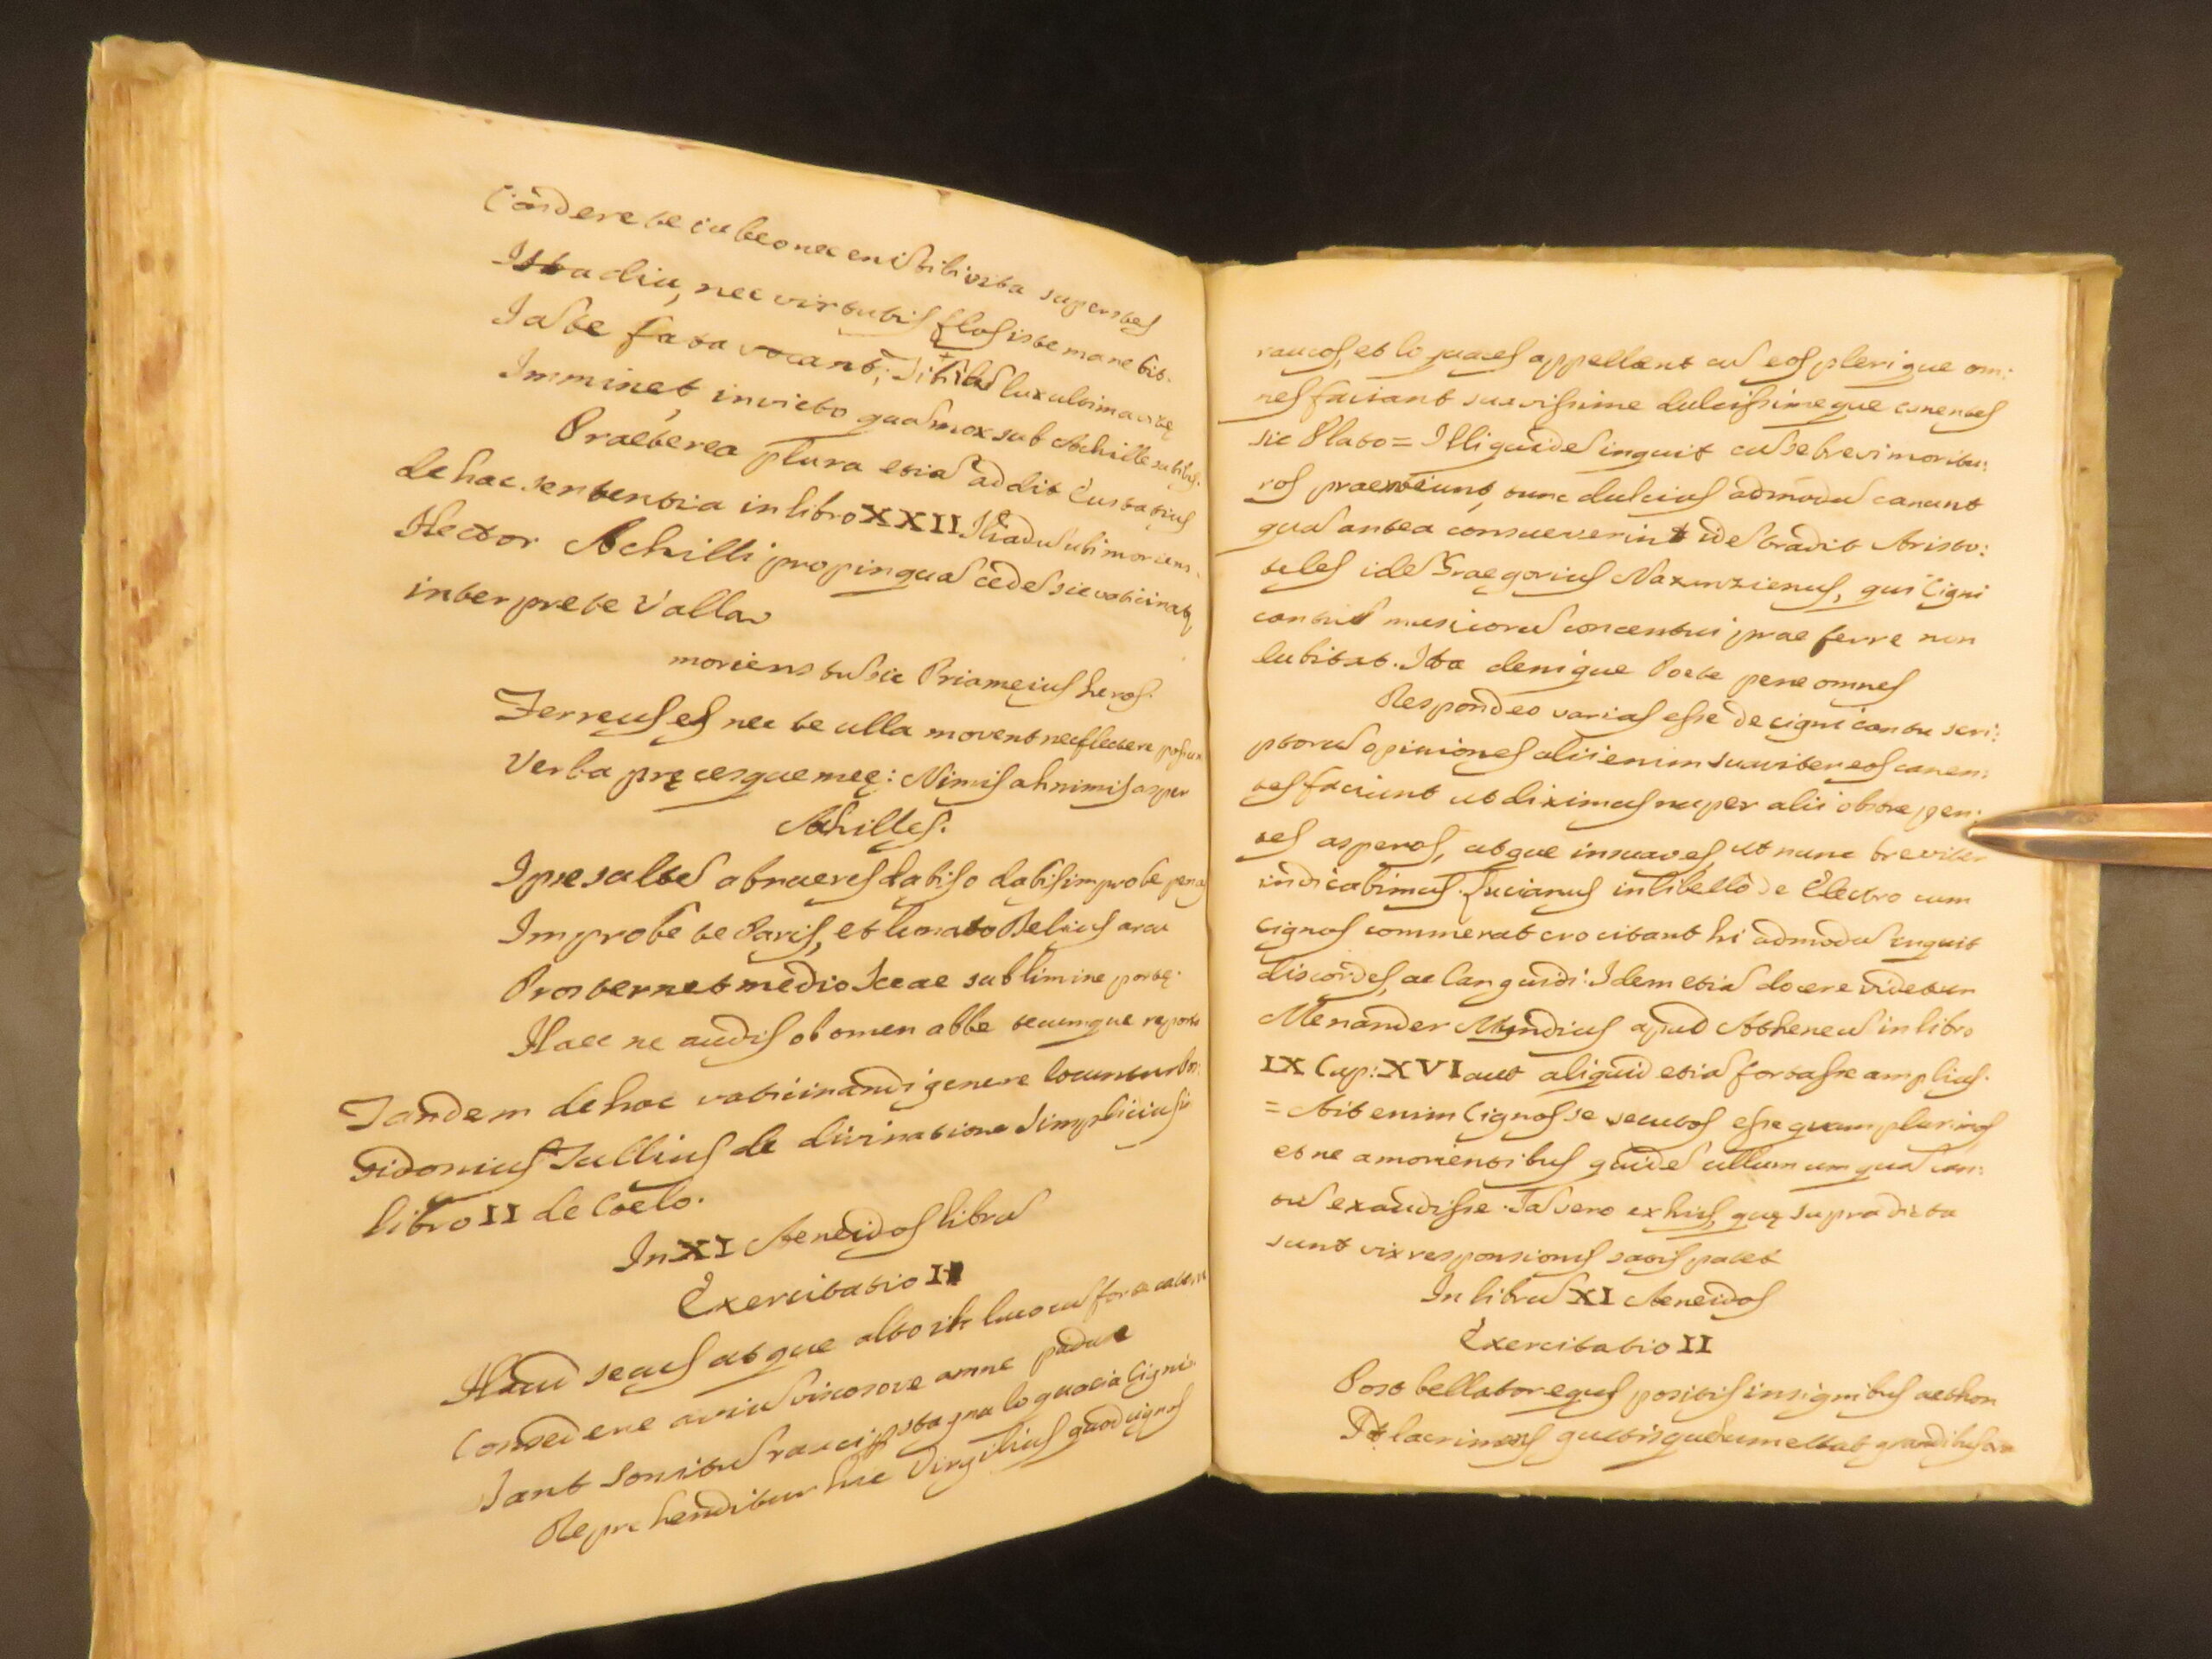 Condere te iubeo nec eni tibi vita superstes
Ista diu, nec virtutis flos iste manebit.
Ia te fata vocant; Tibi lux ultima vitę
Imminet, invicto qua mox sub Achille subibis.
Praeterea plura etia addit Eustatius
de hac sententia in libro XXII Iliadu ubi moriens
Hector Achilli propinqua cęde sic vaticinatur
interprete Valla
moriens tu sic Priameius heros.
Ferreus es nec te ulla movent nec flectere possunt
Verba pręcesque meę: Nimis ah nimis asper
Achilles.
Ipse salte at naeres dabis o dabis improbe penas
Improbe te Paris, et lunato Delius arcu
Prosternet medio Sceae sub limine portę.
Haec ne audis ob omen abbe tecumque reporta
Tandem de hoc vaticinandi genere locuntur
sidonius Tullius de divinatione Simplicius
libro II de Coelo.
In XI Aeneidos libru
Exercitatio I
Haud secus atque alto in luco cu forte catervę
Consedere aviu piscosove amne padusę
Dant sonitu rauci per stagna loquacia Cigni.
Reprehenditur hic Virgilius quod cignos
raucos, et loquaces appellent cu eos plerique om:
nes faciant suavissime dulcissimeque canentes
sic Plato = Illi quide inquit cu se brevi moritu:
ros praesentiunt, tunc dulcius admodu canunt
qua antea consueverint ide tradit Aristo:
teles ide Graegorius Nazanzienus, qui Cigni
cantu musicoru concentui praeferre non
dubitat. Ita denique Poete pene omnes
Respondeo varias esse de cigni cantu scri:
ptoru opiniones alii enim suaviter eos canen:
tes faciunt ut diximus nuper alii obstrepen:
tes asperos, atque insuaves, ut nunc breviter
indicabimus. Lucianus in libello de Electro cum
cignos commerat crocitant hi admodu inquit
discordes, ac languidi: Idem etia docere videtur
Menander Mindius apud Atheneu in libro
IX Cap: XVI aut aliquid etia fortasse amplius.
= Ait enim Cignos se secutos esse quam plurimos
et ne a morientibus quide ullum umqua can:
tu exaudisse. Ia vero ex his, quę supra dicta
sunt vix responsionis satis patet
In libru XI Aeneidos
Exercitatio II
Post bellator equus positis insignibus aethon
It lacrimans guttisque humectat grandibus ora